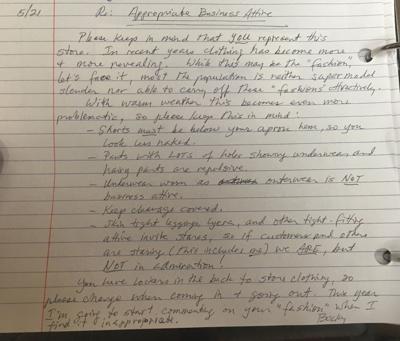 5/21 Re: Appropriate Business Attire
Please keep in mind that you represent this
store. In recent years clothing has become more
+ more revealing. While this may be the "fashion",
let's face it, most the population is neither supermodel
slender nor able to carry off these "fashions" attractively.
With warm weather this becomes even more
problematic, so please keep this in mind:
- Shorts must be below your apron hem, so you
look less naked.
- Pants with LOTS of holes showing underwear and
hairy parts are repulsive.
- Underwear worn as outerwear is NOT
business attire.
- Keep cleavage covered.
- Skin tight leggings, lycra, and other tight-fitting
attire invite stares, so if customers and others
are staring (this includes me) we ARE, but
NOT in admiration!
You have lockers in the back to store clothing, so
please change when coming in + going out. This year
I'm going to start commenting on your "fashion" when I
find it inappropriate. Becky